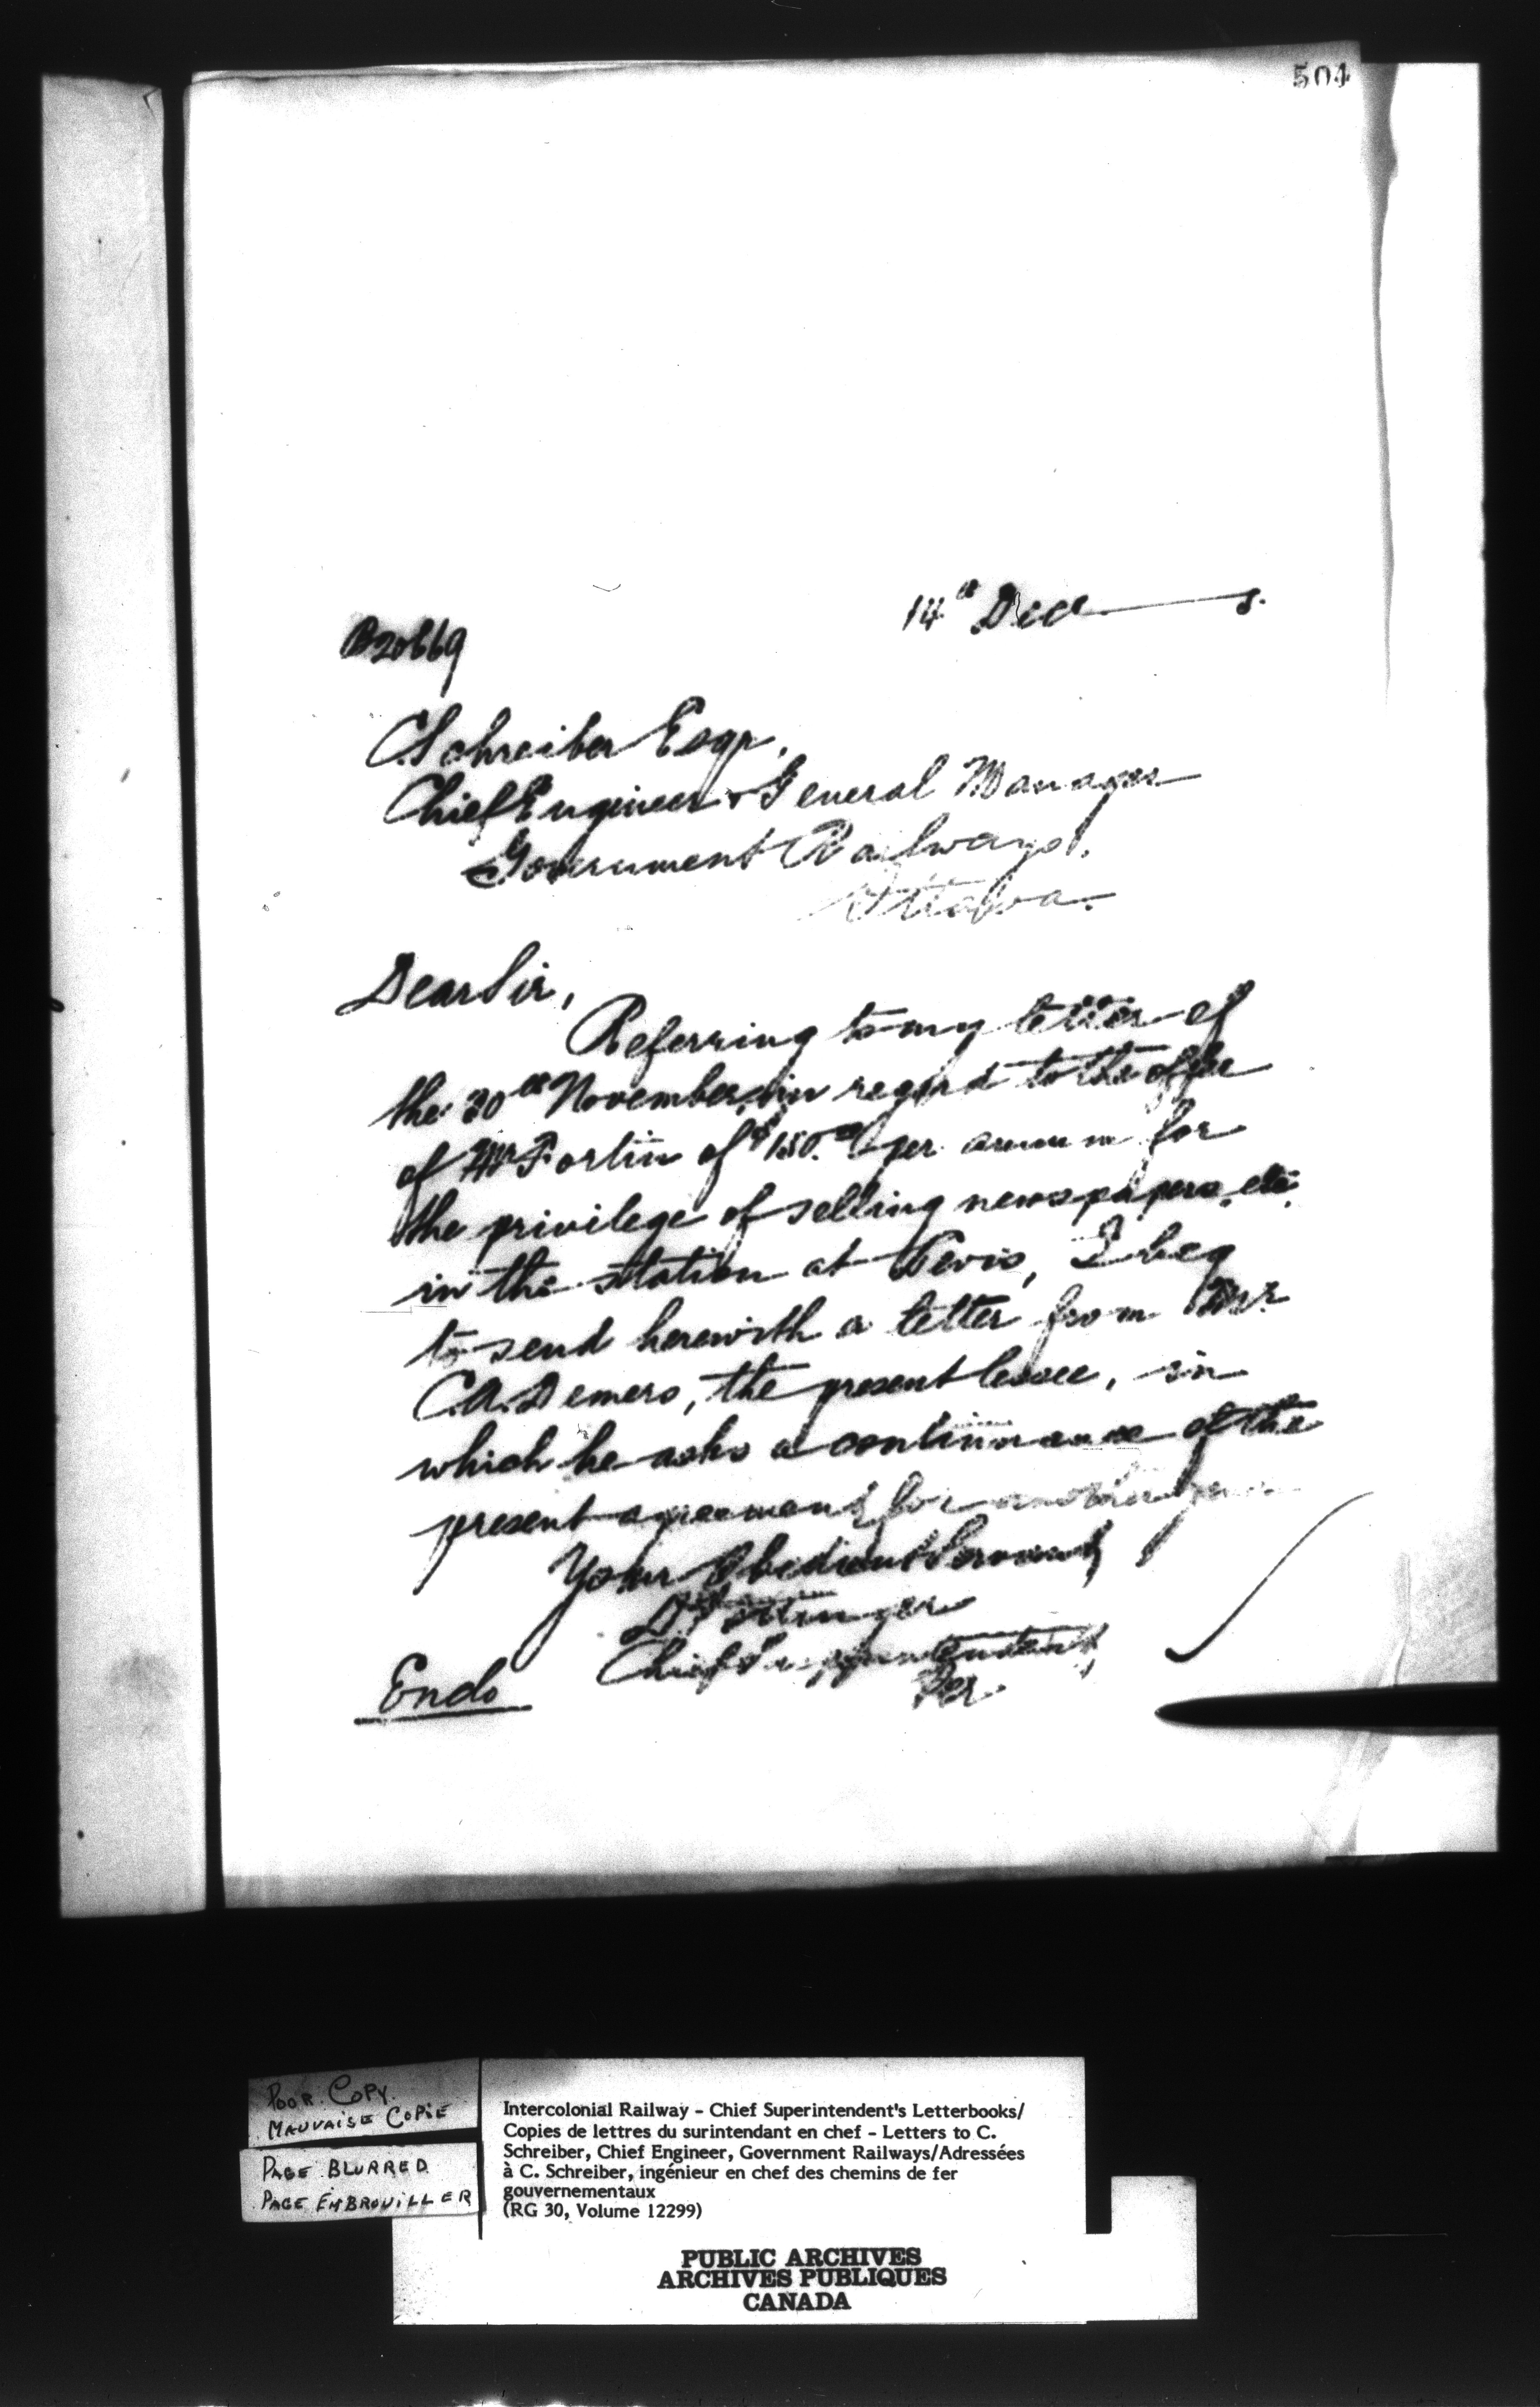 504
14th Decr 5.
B20669
C. Schreiber Esqr,
Chief Engineer & General Manager
Government Railways,
Ottawa.
Dear Sir,
Referring to my letter of
the 30th November, in regard to the offer
of Mr Fortin of $150.00 per annum for
the privilege of selling newspapers, etc.
in the station at Levis, I beg
to send herewith a letter from Mr
C.A. Demers, the present lessee, in
which he asks a continuance of the
present agreement for another
Your Obedient Servant,
D Pottinger
Chief Superintendent,
Per
Enclo
POOR COPY.
MAUVAISE COPIE
PAGE BLURRED
PAGE EMBROUILLER
Intercolonial Railway - Chief Superintendent's Letterbooks/
Copies de lettres du surintendant en chef - Letters to C.
Schreiber, Chief Engineer, Government Railways/Adressées
à C. Schreiber, ingénieur en chef des chemins de fer
gouvernementaux
(RG 30, Volume 12299)
PUBLIC ARCHIVES
ARCHIVES PUBLIQUES
CANADA